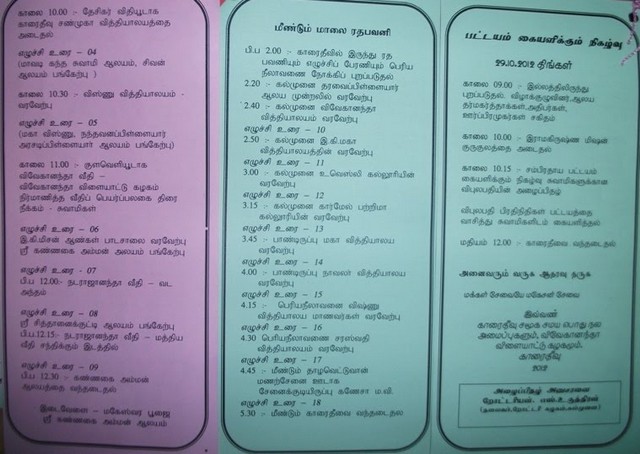 காலை 10.00 :- தேசிகர் வீதியூடாக
காரைதீவு சண்முகா வித்தியாலயத்தை
அடைதல்
எழுச்சி உரை - 04
(மாவடி கந்த சுவாமி ஆலயம், சிவன்
ஆலயம் பங்கேற்பு)
காலை 10.30 :- விஷ்ணு வித்தியாலயம் -
வரவேற்பு
எழுச்சி உரை - 05
(மகா விஷ்ணு, நந்தவனப்பிள்ளையார்
அரசடிப்பிள்ளையார் ஆலயம் பங்கேற்பு)
காலை 11.00 :- குளவெளியூடாக
விவேகானந்தா வீதி -
விவேகானந்தா விளையாட்டு கழகம்
நிர்மாணித்த வீதிப் பெயர்ப்பலகை திரை
நீக்கம் - சுவாமிகள்
எழுச்சி உரை - 06
இ.கி.மிசன் ஆண்கள் பாடசாலை வரவேற்பு
ஸ்ரீ கண்ணகை அம்மன் ஆலயம் பங்கேற்பு
எழுச்சி உரை - 07
பி.ப. 12.10 :- நடராஜானந்தா வீதி - வட
அந்தம்
எழுச்சி உரை - 08
ஸ்ரீ சித்தானைக்குட்டி ஆலயம் பங்கேற்பு
பி.ப.12.15:- நடராஜானந்தா வீதி - மத்திய
வீதி சந்திக்கும் இடத்தில்
எழுச்சி உரை - 09
பி.ப 12.30 :- கண்ணகை அம்மன்
ஆலயத்தை வந்தடைதல்
இடைவேளை - மகேஸ்வர பூஜை
ஸ்ரீ கண்ணகை அம்மன் ஆலயம்
மீண்டும் மாலை ரதபவனி
பி.ப 2.00 :- காரைதீவில் இருந்து ரத
பவணியும் எழுச்சிப் பேரணியும் பெரிய
நீலாவணை நோக்கிப் புறப்படுதல்
2.20 :- கல்முனை தரவைப்பிள்ளையார்
ஆலய முன்றலில் வரவேற்பு
2.40 :- கல்முனை விவேகானந்தா
வித்தியாலயம் வரவேற்பு
எழுச்சி உரை - 10
2.50 :- கல்முனை இ.கி.மகா
வித்தியாலயத்தின் வரவேற்பு
எழுச்சி உரை - 11
3.00 :- கல்முனை உவெஸ்லி கல்லூரியின்
வரவேற்பு
எழுச்சி உரை - 12
3.15 :- கல்முனை கார்மேல் பற்றிமா
கல்லூரியின் வரவேற்பு
எழுச்சி உரை - 13
3.45 :- பாண்டிருப்பு மகா வித்தியாலய
வரவேற்பு
எழுச்சி உரை - 14
4.00 :- பாண்டிருப்பு நாவலர் வித்தியாலய
வரவேற்பு
எழுச்சி உரை - 15
4.15 :- பெரியநீலாவனை விஷ்ணு
வித்தியாலய மாணவர்கள் வரவேற்பு
எழுச்சி உரை - 16
4.30 பெரியநீலாவணை சரஸ்வதி
வித்தியாலயம் வரவேற்பு
எழுச்சி உரை - 17
4.45 :- மீண்டும் தாழவெட்டுவான்
மணற்சேனை ஊடாக
சேனைக்குடியிருப்பு கணேசா ம.வி.
எழுச்சி உரை - 18
5.30 :- மீண்டும் காரைதீவை வந்தடைதல்
பட்டயம் கையளிக்கும் நிகழ்வு
29.10.2012 திங்கள்
காலை 09.00 :- இல்லத்திலிருந்து
புறப்படுதல், விழாக்குழுவினர்,ஆலய
தர்மகர்த்தாக்கள்,அதிபர்கள்,
ஊர்ப்பிரமுகர்கள் சகிதம்
காலை 10.00 :- இராமகிருஷ்ண மிஷன்
குருகுலத்தை அடைதல்
காலை 10.15 :- சம்பிரதாய பட்டயம்
கையளிக்கும் நிகழ்வு சுவாமிகளுக்கான
விபுலபதியின் அழைப்பிதழ்
விபுலபதி பிரதிநிதிகள் பட்டயத்தை
வாசித்து சுவாமிகளிடம் கையளித்தல்
மதியம் 12.00 :- காரைதீவை வந்தடைதல்
அனைவரும் வருக ஆதரவு தருக
மக்கள் சேவையே மகேசன் சேவை
இவ்வண்
காரைதீவு சமூக சமய பொது நல
அமைப்புகளும், விவேகானந்தா
விளையாட்டு கழகமும்.
காரைதீவு
2012
அழைப்பிதழ் அனுசரணை
றோட்டரியன். எஸ்.உருத்திரன்
(தலைவர்,றோட்டரி கழகம்,கல்முனை)